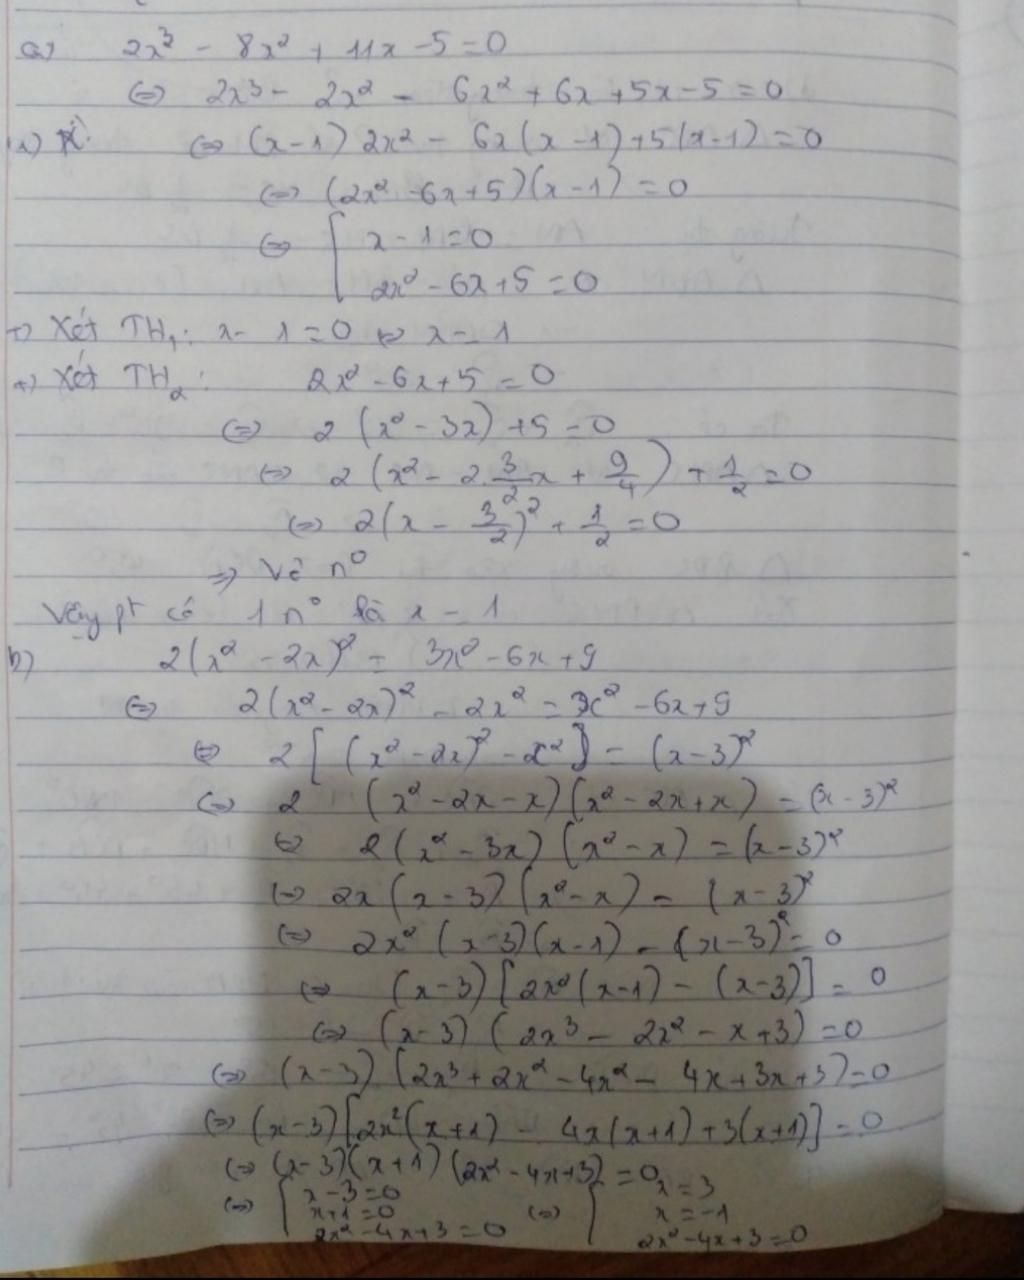 a) 2x³ - 8x² + 11x - 5 = 0
⇔ 2x³ - 2x² - 6x² + 6x + 5x - 5 = 0
⇔ (x-1) 2x² - 6x(x-1) + 5(x-1) = 0
⇔ (2x² - 6x + 5)(x-1) = 0
⇔ [ x - 1 = 0
2x² - 6x + 5 = 0
+) Xét TH₁: x - 1 = 0 ⇔ x = 1
+) Xét TH₂: 2x² - 6x + 5 = 0
⇔ 2(x² - 3x) + 5 = 0
⇔ 2(x² - 2.3/2x + 9/4) + 1/2 = 0
⇔ 2(x - 3/2)² + 1/2 = 0
⇒ Vô n⁰
Vậy pt có 1 n⁰ là x = 1
b) 2(x² - 2x)² = 3x² - 6x + 9
⇔ 2(x² - 2x)² - 2x² = x² - 6x + 9
⇔ 2[(x² - 2x)² - x²] = (x-3)²
⇔ 2 (x² - 2x - x)(x² - 2x + x) = (x-3)²
⇔ 2(x² - 3x)(x² - x) = (x-3)²
⇔ 2x(x-3)(x² - x) = (x-3)²
⇔ 2x²(x-3)(x-1) - (x-3)² = 0
⇔ (x-3)[2x²(x-1) - (x-3)] = 0
⇔ (x-3)(2x³ - 2x² - x + 3) = 0
⇔ (x-3)(2x³ + 2x² - 4x² - 4x + 3x + 3) = 0
⇔ (x-3)[2x²(x+1) - 4x(x+1) + 3(x+1)] = 0
⇔ (x-3)(x+1)(2x² - 4x + 3) = 0
⇔ [ x - 3 = 0 ⇔ [ x = 3
x + 1 = 0 x = -1
2x² - 4x + 3 = 0 2x² - 4x + 3 = 0